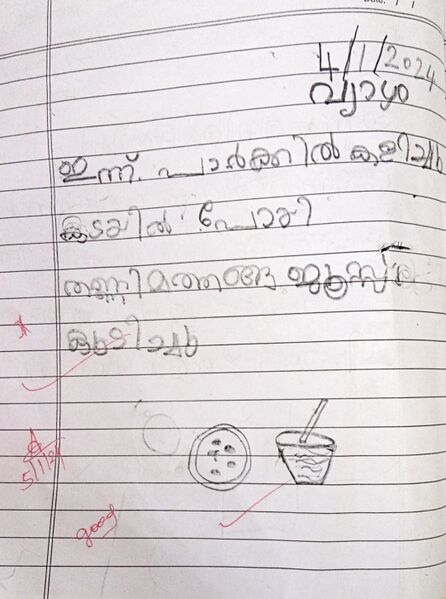 4/1/2024
വ്യാഴം
ഇന്ന് പാർക്കിൽ കളിച്ചു
കടയിൽ പോയി
തണ്ണിമത്തങ്ങ ജ്യൂസ്
കുടിച്ചു
5/1/24
good